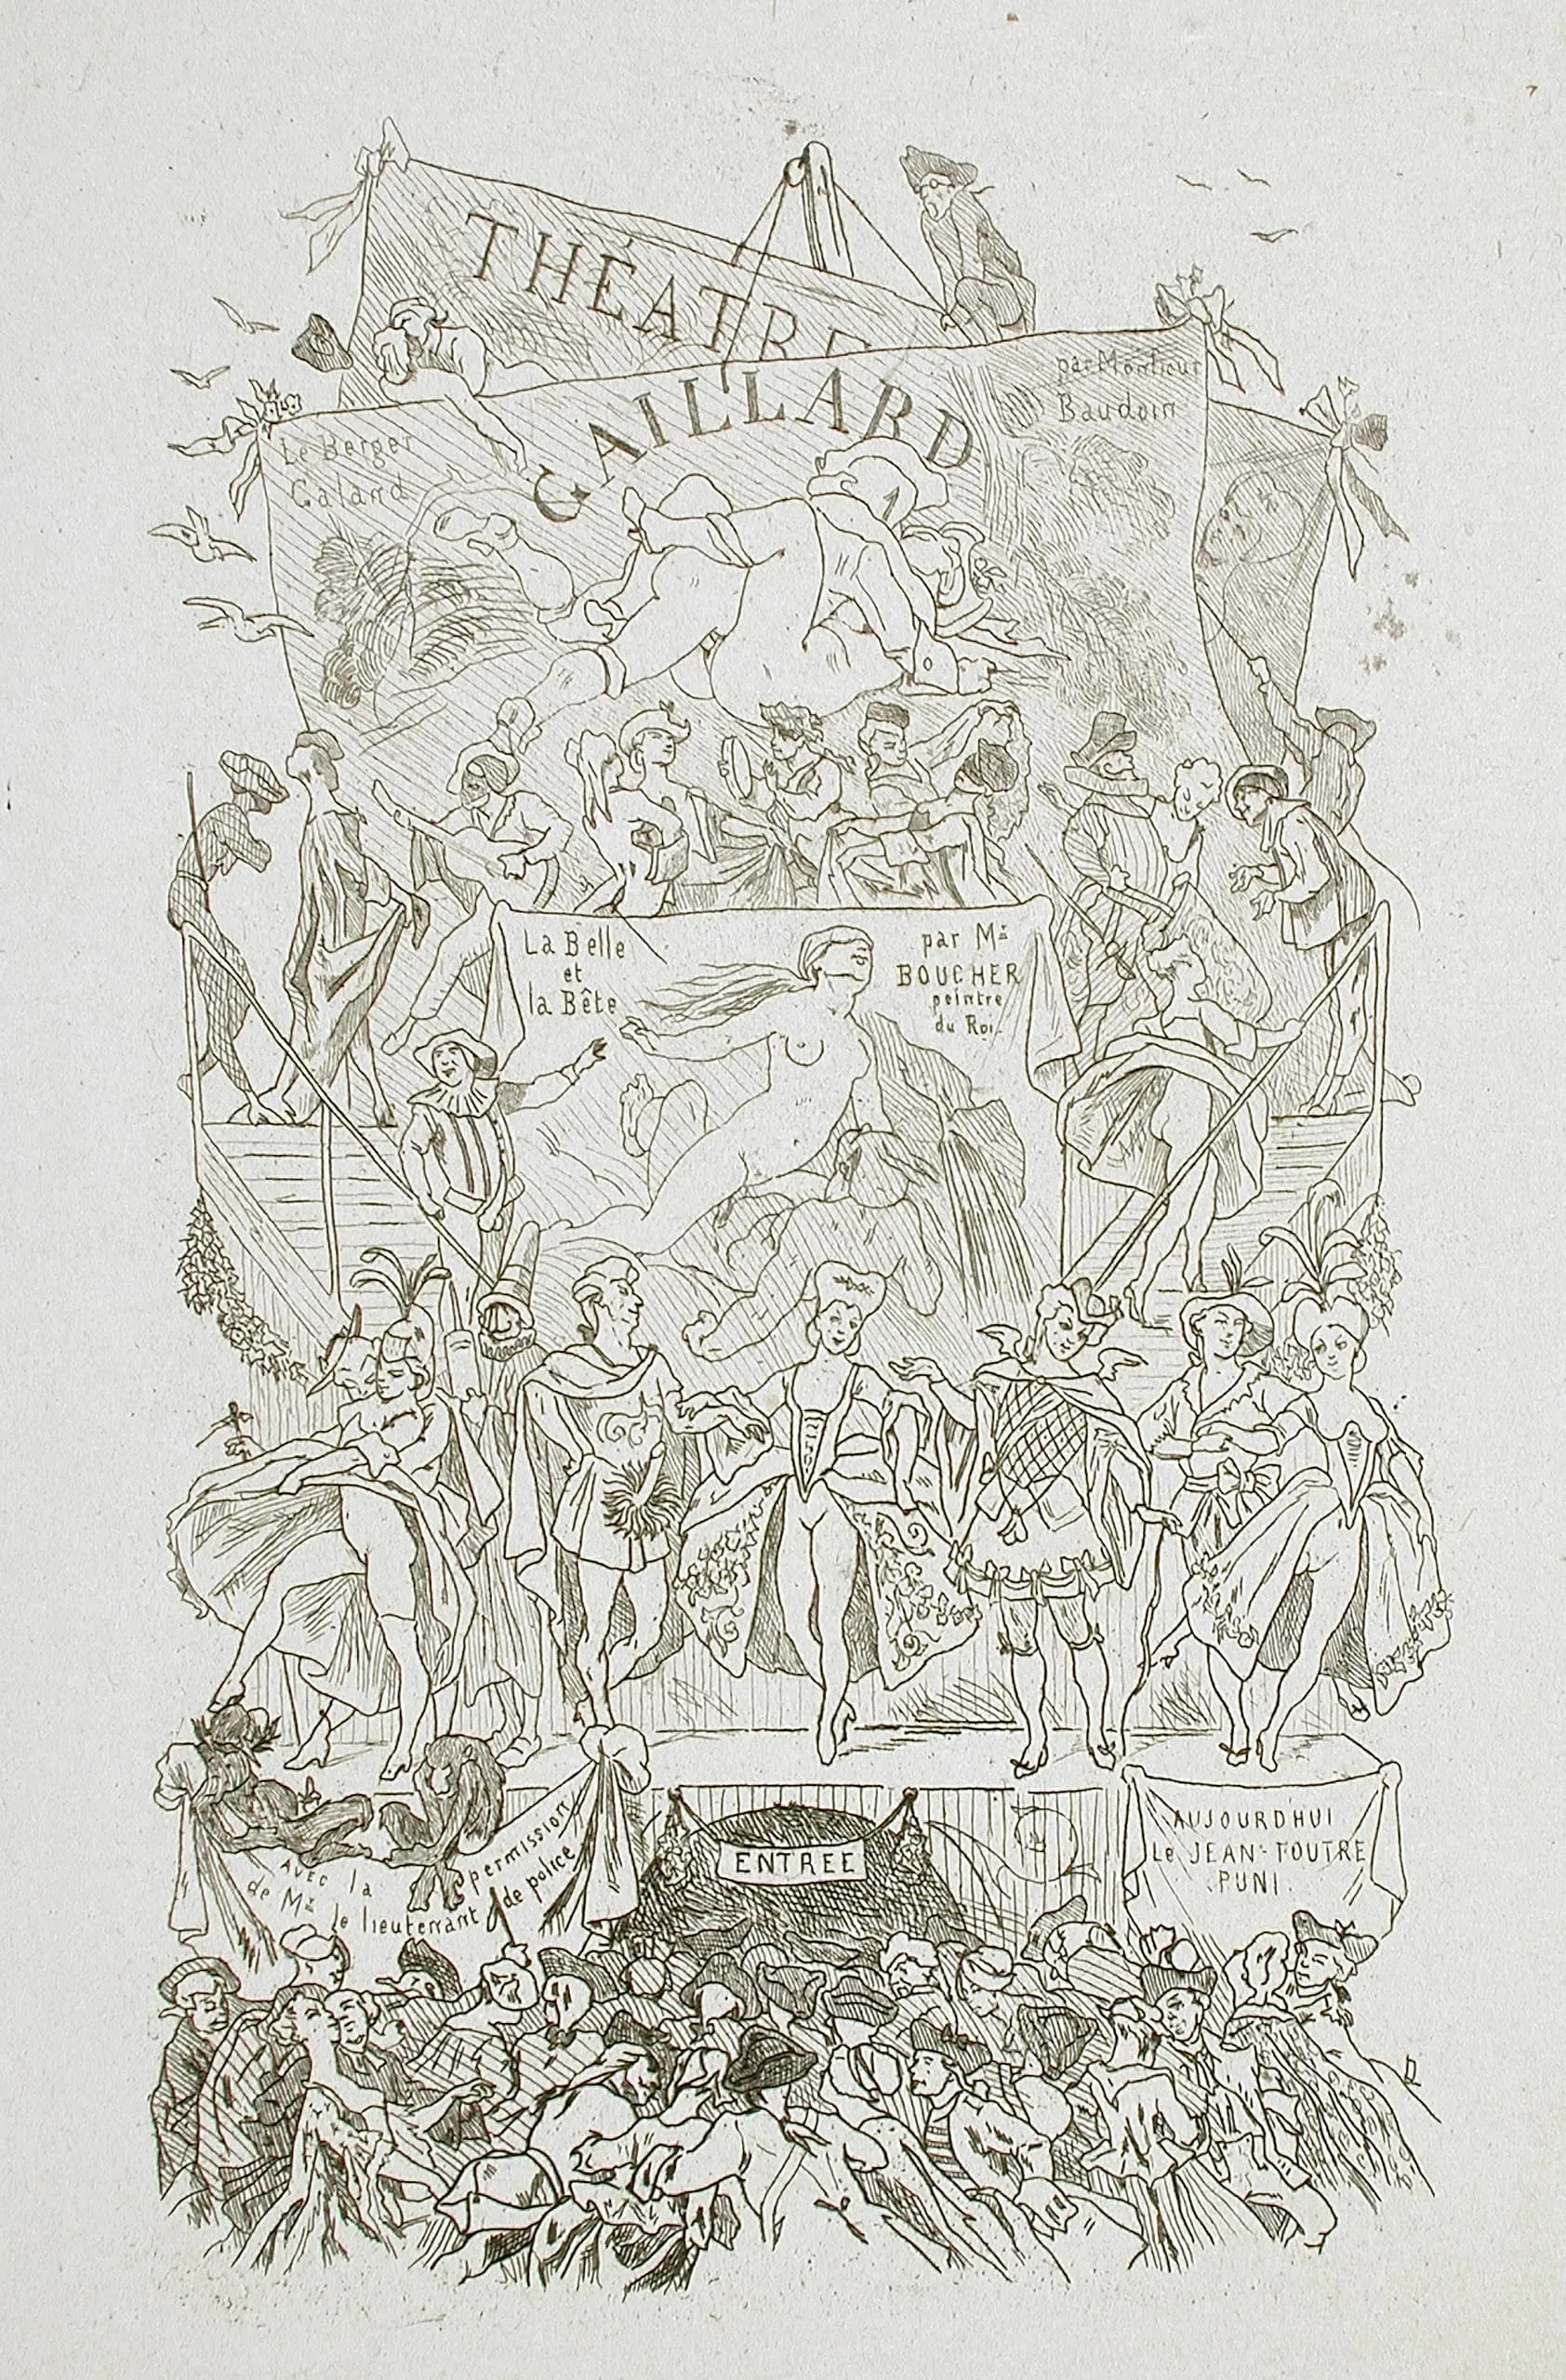 THÉATRE
GAILLARD
Le Berger
Galand
par Monsieur
Baudoin
La Belle
et
la Bête
par Mr
BOUCHER
peintre
du Roi
Avec la permission
de Mr le lieutenant de police
ENTREE
AUJOURD'HUI
Le JEAN-FOUTRE
PUNI.